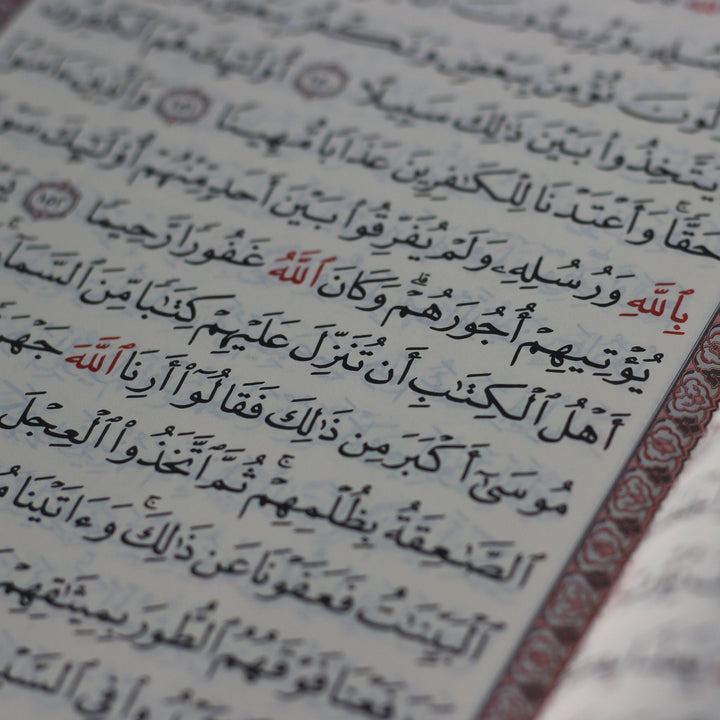 نُؤْمِنُ بِبَعْضٍ وَنَكْفُرُ
يَتَّخِذُوا۟ بَيْنَ ذَٰلِكَ سَبِيلًا ١٥٠ أُو۟لَٰٓئِكَ هُمُ ٱلْكَٰفِرُونَ
حَقًّا ۚ وَأَعْتَدْنَا لِلْكَٰفِرِينَ عَذَابًا مُّهِينًا ١٥١ وَٱلَّذِينَ ءَامَنُوا۟
بِٱللَّهِ وَرُسُلِهِۦ وَلَمْ يُفَرِّقُوا۟ بَيْنَ أَحَدٍ مِّنْهُمْ أُو۟لَٰٓئِكَ سَوْ
يُؤْتِيهِمْ أُجُورَهُمْ ۗ وَكَانَ ٱللَّهُ غَفُورًا رَّحِيمًا ١٥٢
أَهْلُ ٱلْكِتَٰبِ أَن تُنَزِّلَ عَلَيْهِمْ كِتَٰبًا مِّنَ ٱلسَّمَآ
مُوسَىٰٓ أَكْبَرَ مِن ذَٰلِكَ فَقَالُوٓا۟ أَرِنَا ٱللَّهَ جَهْرَ
ٱلصَّٰعِقَةُ بِظُلْمِهِمْ ۚ ثُمَّ ٱتَّخَذُوا۟ ٱلْعِجْلَ
ٱلْبَيِّنَٰتُ فَعَفَوْنَا عَن ذَٰلِكَ ۚ وَءَاتَيْنَا مُ
وَرَفَعْنَا فَوْقَهُمُ ٱلطُّورَ بِمِيثَٰقِهِمْ
فِى ٱلسَّبْ